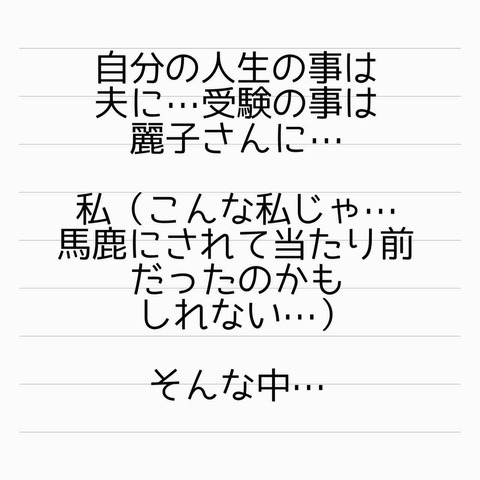 自分の人生の事は
夫に…受験の事は
麗子さんに…
私（こんな私じゃ…
馬鹿にされて当たり前
だったのかも
しれない…）
そんな中…